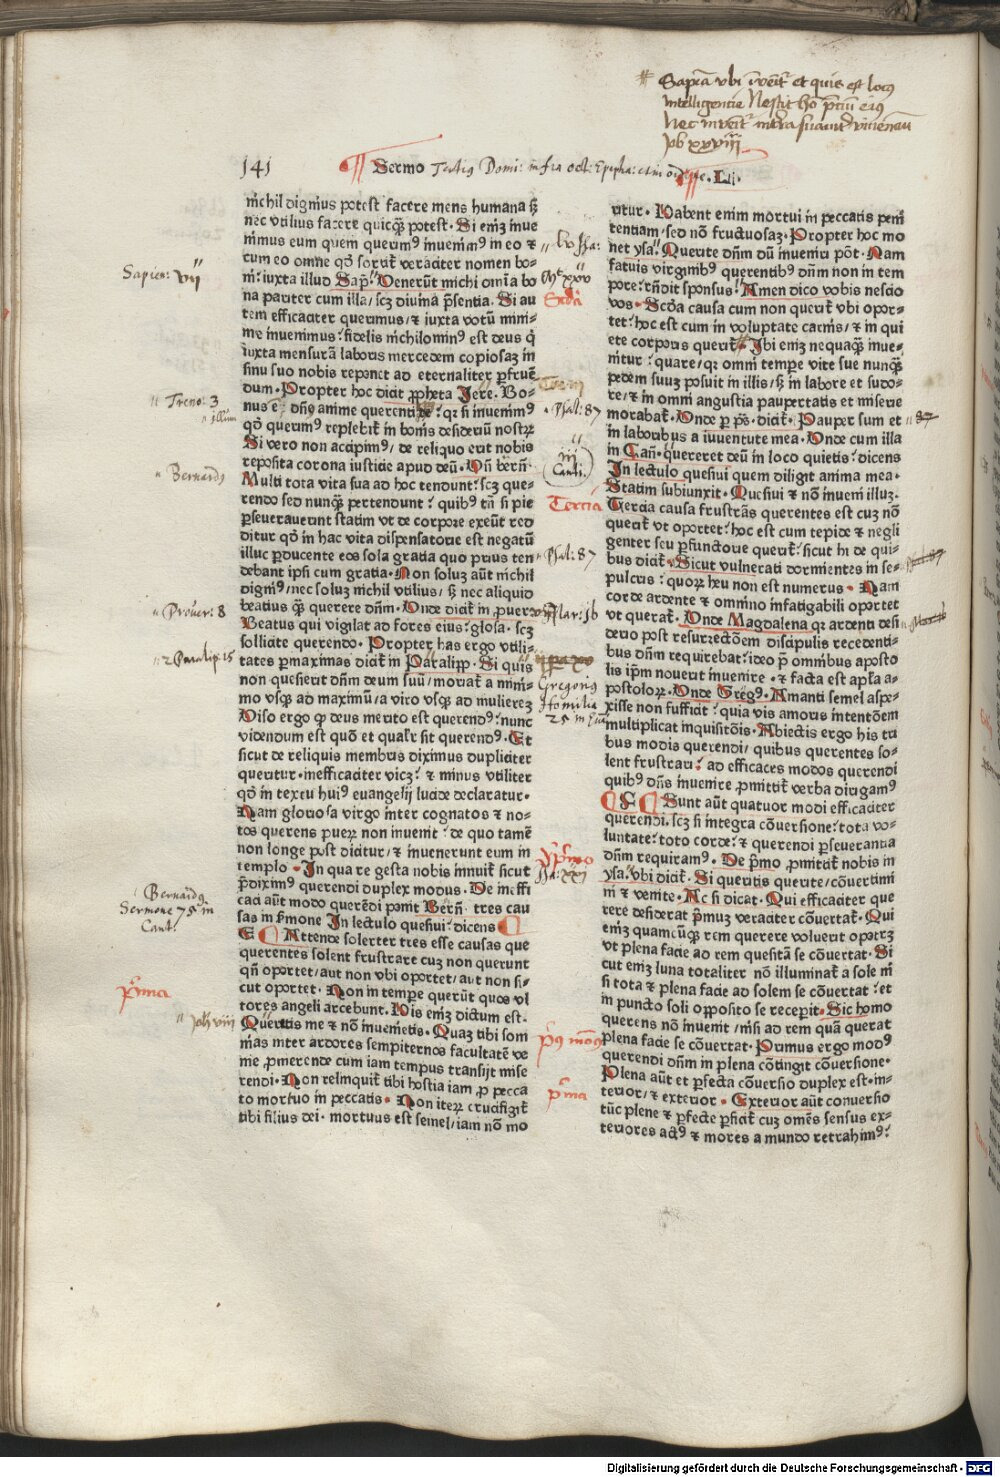 Sapīa vbi īvēit' et quis est locus
intelligentie Nescit hō p̄ciū eius
Nec invenit' in terra suauit' viuentiū
Job xxviij
141
Sermo Tertius Domi: infra oct: Epipha: .Lij.
nichil dignius potest facere mens humana sȝ
nec vtilius facere quicqȝ potest. Si enim inue
nimus eum quem querimꝰ inuenimꝰ in eo ⁊
cum eo omne qđ sortit' veraciter nomen bo-
ni: iuxta illud Sap̄. Venerūt michi omīa bo
na pariter cum illa/ scȝ diuina p̄sentia. Si au
tem efficaciter querimus/ ⁊ iuxta votū mini-
me inuenimus: fidelis nichilominꝰ est deus q̄
iuxta mensurā laboris mercedem copiosaȝ in
sinu suo nobis reponet ad eternaliter p̄fruē
dum. Propter hoc dicit ꝓpheta Jere. Bo-
nus ē dn̄s anime querenti qꝛ si inuenimꝰ
qđ querimꝰ replebit' in bonis desideriū nostꝝ
Si vero non accipimꝰ/ de reliquo erit nobis
reposita corona iusticie apud deū. Vn̄ bern̄.
Multi tota vita sua ad hoc tendunt: scȝ que-
rendo sed nunqȝ pertendunt: quibꝰ tn̄ si pie
ꝑseuerauerint statim vt de corpore exeūt red
ditur qđ in hac vita dispensatorie est negatū
illuc ꝑducente eos sola gratia quo prius ten
debant ipsi cum gratia. Non soluȝ aūt nichil
dignꝰ/ nec soluȝ nichil vtilius/ sȝ nec aliquid
beatius qȝ querere dn̄m. Vnde dicit' in ꝓuer
Beatus qui vigilat ad fores eius: glosa. scȝ
sollicite querendo. Propter has ergo vtili-
tates ꝑmaximas dicit' in Paralipp. Si quis
non quesierit dn̄m deum suū/ moriat' a mini-
mo vsqȝ ad maximū/ a viro vsqȝ ad mulierez
Viso ergo ꝙ deus merito est querendꝰ: nunc
videndum est quō et qualr sit querendꝰ. Et
sicut de reliquis membris diximus dupliciter
queritur. inefficaciter vicȝ: ⁊ minus vtiliter
qđ in textu huiꝰ euangelij lucide declaratur.
Nam gloriosa virgo inter cognatos ⁊ no-
tos querens pueꝝ non inuenit: de quo tamē
non longe post dicitur/ ⁊ inuenerunt eum in
templo. In qua re gesta nobis innuit' sicut
p̄diximꝰ querendi duplex modus. De ineffi
caci aūt modo querēdi ponit Bern̄. tres cau
sas in sermone In lectulo quesiui: dicens
E Attende solerter tres esse causas que
querentes solent frustrare cuȝ non querunt
qn̄ oportet/ aut non vbi oportet/ aut non si-
cut oportet. Non in tempe querūt quos vl
tores angeli arcebunt. His eniȝ dictum est.
Queritis me ⁊ nō inuenietis. Quaȝ tibi som
nias inter ardores sempiternos facultatē ve
nie ꝓmerende cum iam tempus transijt mise
rendi. Non relinquit' tibi hostia iam ꝓ pecca
to mortuo in peccatis. Non iteꝝ crucifigit'
tibi filius dei. mortuus est semel/ iam nō mo
ritur. Habent enim mortui in peccatis peni
tentiam/ sed nō fructuosaȝ. Propter hoc mo
net ysa. Querite dn̄m dū inueniri pōt. Nam
fatuis virginibꝰ querentibꝰ dn̄m non in tem
pore: rn̄dit sponsus. Amen dico vobis nescio
vos. Scđa causa cum non querit' vbi opor-
tet: hoc est cum in voluptate carnis/ ⁊ in qui
ete corporis querit'. Ibi eniȝ nequaqȝ inue-
nitur: quare/ qꝛ omni tempe vite sue nunqȝ
pedem suuȝ posuit in illis/ sȝ in labore et sudo-
re/ ⁊ in omni angustia paupertatis et miserie
morabat'. Vnde ꝑ ps̄. dicit'. Pauper sum et
in laboribus a iuuentute mea. Vnde cum illa
in Can̄. quereret deū in loco quietis: dicens
In lectulo quesiui quem diligit anima mea.
Statim subiunxit. Quesiui ⁊ nō inueni illuȝ.
Tercia causa frustrās querentes est cuȝ nō
querit' vt oportet: hoc est cum tepide ⁊ negli
genter seu ꝑfunctorie querit': sicut hi de qui-
bus dicit'. Sicut vulnerati dormientes in se-
pulcris: quoꝝ heu non est numerus. Nam
corde ardente ⁊ omnino infatigabili oportet
vt querat'. Vnde Magdalena qꝛ ardenti desi
derio post resurrectōem discipulis recedenti-
bus dn̄m requirebat: ideo p̄ omnibus aposto
lis ip̄m nouerit inuenire. ⁊ facta est apl̄a a-
postoloꝝ. Vnde Gregꝰ. Amanti semel aspe-
xisse non sufficit: quia vis amoris intentōem
multiplicat inquisitōis. Abiectis ergo his tri
bus modis querendi/ quibus querentes so-
lent frustrari: ad efficaces modos querendi
quibꝰ dn̄s inuenire ꝓmittit' verba dirigamꝰ
F Sunt aūt quatuor modi efficaciter
querendi. scȝ si integra cōuersione: tota vo-
luntate: toto corde: ⁊ querendi ꝑseuerantia
dn̄m requiramꝰ. De p̄mo ꝓmittit' nobis in
ysa. vbi dicit'. Si queritis querite/ cōuertimi
ni ⁊ venite. Ac si dicat. Qui efficaciter que
rere desiderat primuȝ veraciter cōuertat'. Qui
eniȝ quamcūqȝ rem querere voluerit oportȝ
vt plena facie ad rem quesitā se cōuertat. Si
cut eniȝ luna totaliter nō illuminat' a sole ni
si tota ⁊ plena facie ad solem se cōuertat: et
in puncto soli opposito se recepit. Sic homo
querens nō inuenit/ nisi ad rem quā querat
plena facie se cōuertat. Primus ergo modꝰ
querendi dn̄m in plena cōtingit cōuersione.
Plena aūt et ꝑfecta cōuersio duplex est. in-
terior/ ⁊ exterior. Exterior aūt conuersio
tūc plene ⁊ ꝑfecte ꝑficit' cuȝ omēs sensus ex-
teriores actꝰ ⁊ mores a mundo retrahimꝰ.
Sapien: vij
Treno: 3
Bernardꝰ
Prouer: 8
2 Paralip: 15
Bernardꝰ
Sermone 75 in
Cant.
p̄ima
Joh viij
Lv Isa:
Mt xxv
Scđa
Psal: 87
iij
Canti.
Tercia
Psal: 87
Mar: 16
Gregorius
Homilia
25 in Euā
p̄mo
Isa: xxi
p̄ꝰ modꝰ
p̄ima
87
Digitalisierung gefördert durch die Deutsche Forschungsgemeinschaft - DFG